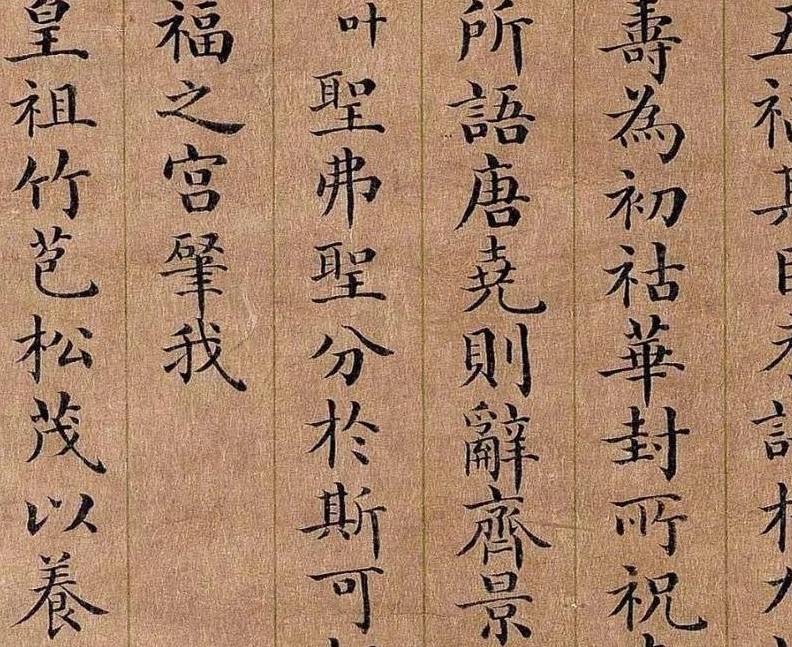 壽為初祜華封所祝
所語唐堯則辭齊景
叶聖弗聖分於斯可
福之宮肇我
皇祖竹苞松茂以養